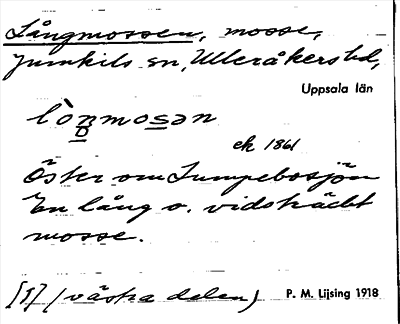 Långmossen, mosse,
Jumkils sn, Ulleråkers hd,
Uppsala län
ek 1861
Öster om Lumpebosjön
En lång o. vidsträckt
mosse.
[1] (västra delen) P. M. Lijsing 1918